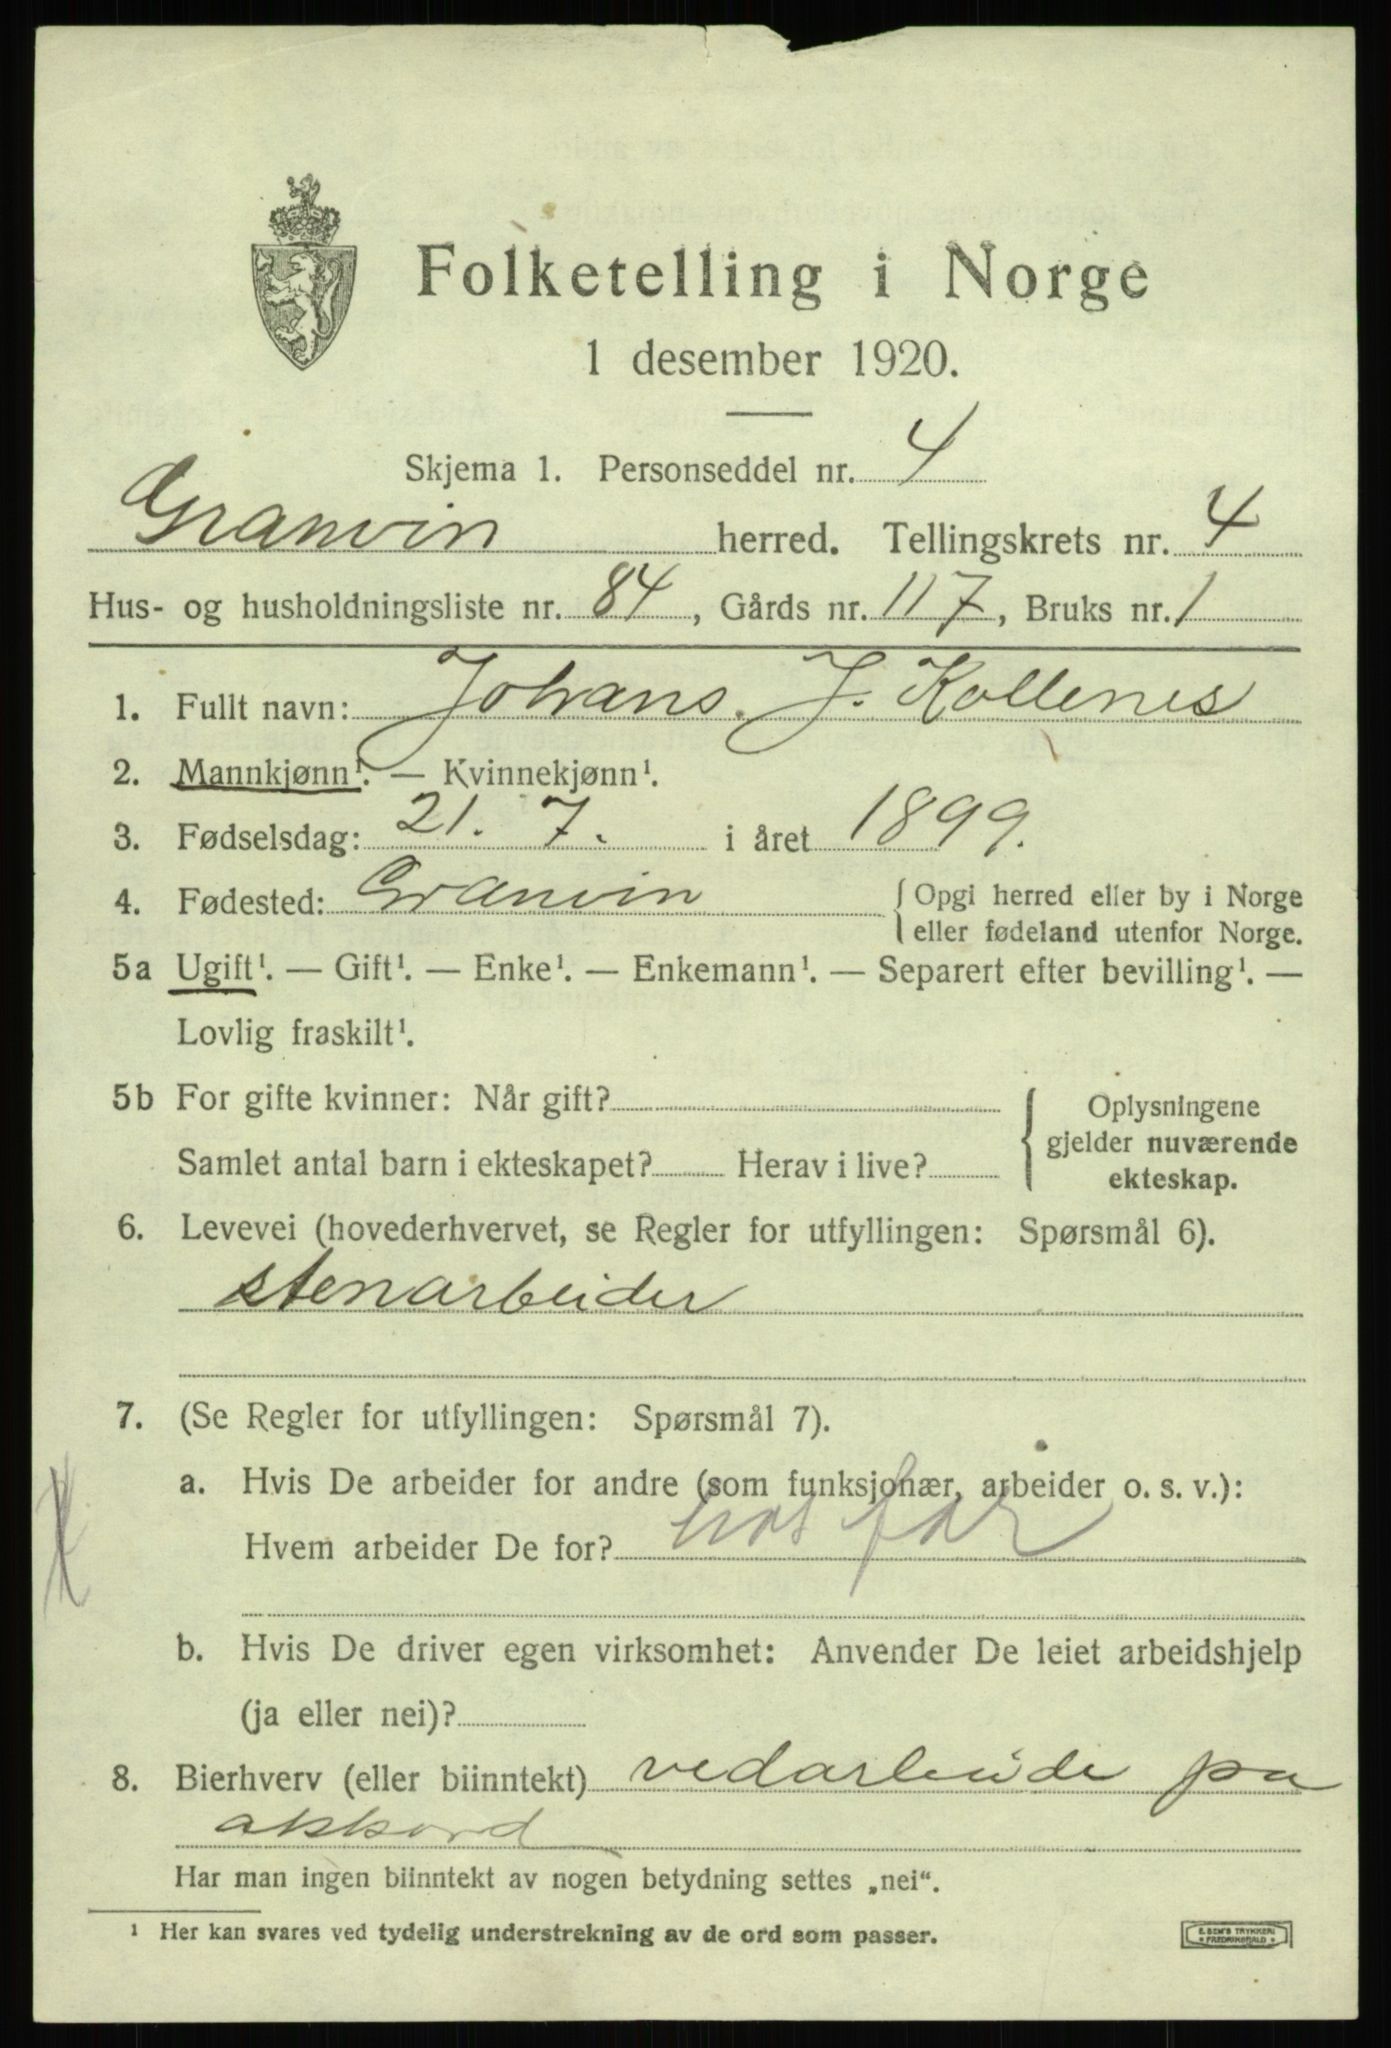 Folketelling i Norge
1 desember 1920.
Skjema 1. Personseddel nr. 4
Granvin herred. Tellingskrets nr. 4
Hus- og husholdningsliste nr. 84, Gårds nr. 117, Bruks nr. 1
1. Fullt navn: Johans. J. Kollenes
2. Mannkjønn¹. — Kvinnekjønn¹.
3. Fødselsdag: 21. 7. i året 1899.
4. Fødested: Granvin { Opgi herred eller by i Norge
eller fødeland utenfor Norge.
5a Ugift¹. — Gift¹. — Enke¹. — Enkemann¹. — Separert efter bevilling¹. —
Lovlig fraskilt¹.
5b For gifte kvinner: Når gift? { Oplysningene
gjelder nuværende
Samlet antal barn i ekteskapet? Herav i live?
ekteskap.
6. Levevei (hovederhvervet, se Regler for utfyllingen: Spørsmål 6).
stenarbeider
7. (Se Regler for utfyllingen: Spørsmål 7).
a. Hvis De arbeider for andre (som funksjonær, arbeider o. s. v.):
Hvem arbeider De for? hos far
b. Hvis De driver egen virksomhet: Anvender De leiet arbeidshjelp
(ja eller nei)?
8. Bierhverv (eller biinntekt) vedarbeide pa
akkord
Har man ingen biinntekt av nogen betydning settes „nei“.
¹ Her kan svares ved tydelig understrekning av de ord som passer.
E. SEM'S TRYKKERI
FREDRIKSHALD